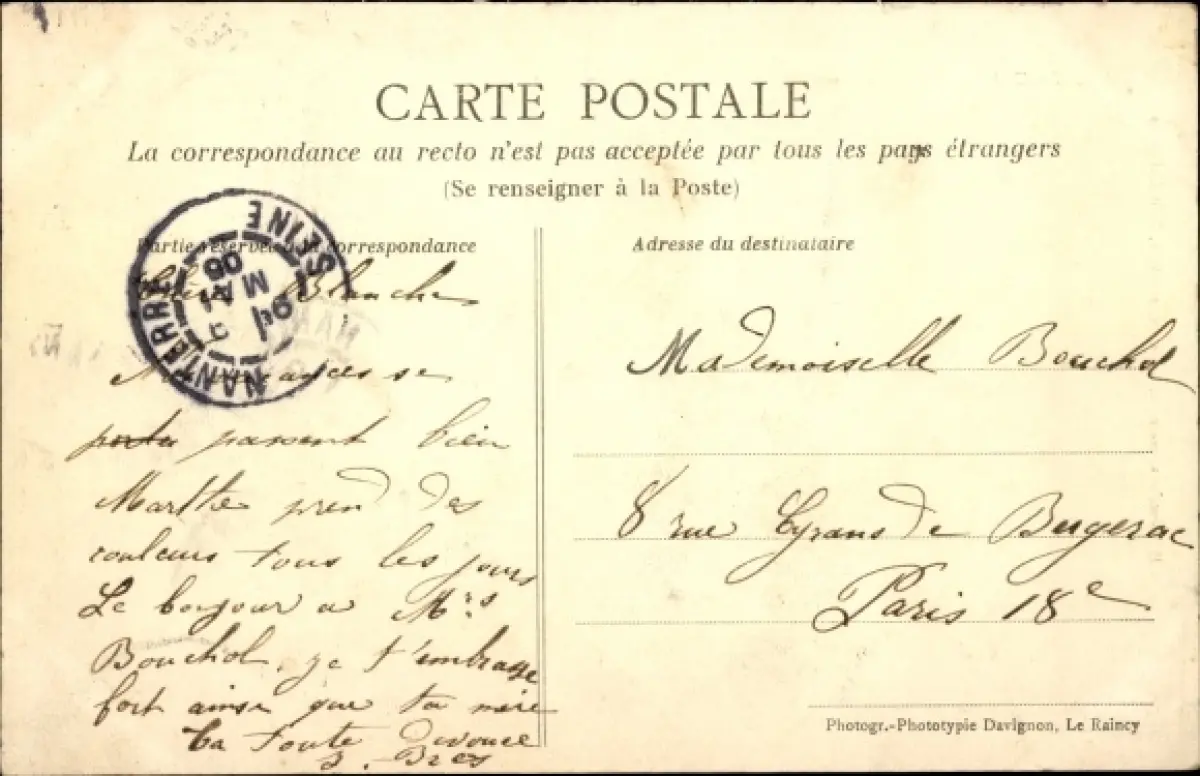 CARTE POSTALE
La correspondance au recto n'est pas acceptée par tous les pays étrangers
(Se renseigner à la Poste)
Partie réservée à la correspondance
Adresse du destinataire
NANTERRE SEINE
MAI 05
Chère Blanche
se
passent bien
Marthe prend des
couleurs tous les jours
Le bonjour a Mrs
Bouchol, je t'embrasse
fort ainsi que ta mère
Ta toute dévouée
Mademoiselle Bouchol
8 rue Cyrano de Bergerac
Paris 18e
Photogr.-Phototypie Davignon, Le Raincy